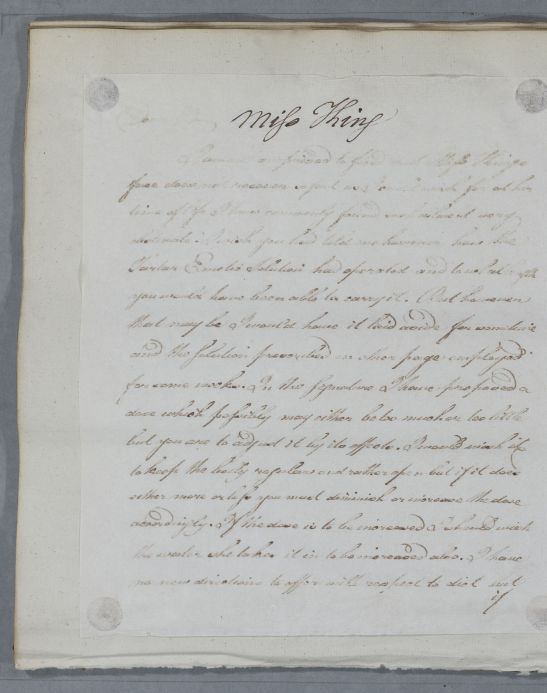 Miss King
I am not surprised to find that Miss King's
face does not recover so fast as I could wish for at her
time of life I have commonly found such ailments very
obstinate. I wish you had told me however how the
Tartar Emetic Solution had operated and to what
you would have been able to carry it. But however
that may be I would have it laid aside for some time
and the Solution prescribed on other page employed
for some weeks. In the Signature I have proposed a
dose which possibly may either be too much or too little
but you are to adjust it by its effects. I would wish it
to keep the belly regular and rather open but if it does
either more or less you must diminish or increase the dose
accordingly. If the dose is to be increased I should wish
the water she takes it in to be increased also. I have
no new directions to offer with respect to diet but
if